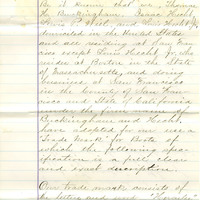 Be it known that we Thomas
Buckingham, Isaac Hecht,
Louis
in the United States
and all residing at San Fran-
cisco except Louis Hecht Jr. who
resides at Boston in the State
of Massachusetts, and doing
business at San Francisco
in the County of San Fran-
cisco and State of California
under the firm name of
Buckingham and Hecht,
have adopted for our use a
"Trade Mark" for Boots of
which the following spec-
ification is a full, clear
and exact description.
Our trade mark consists of
the letters and word